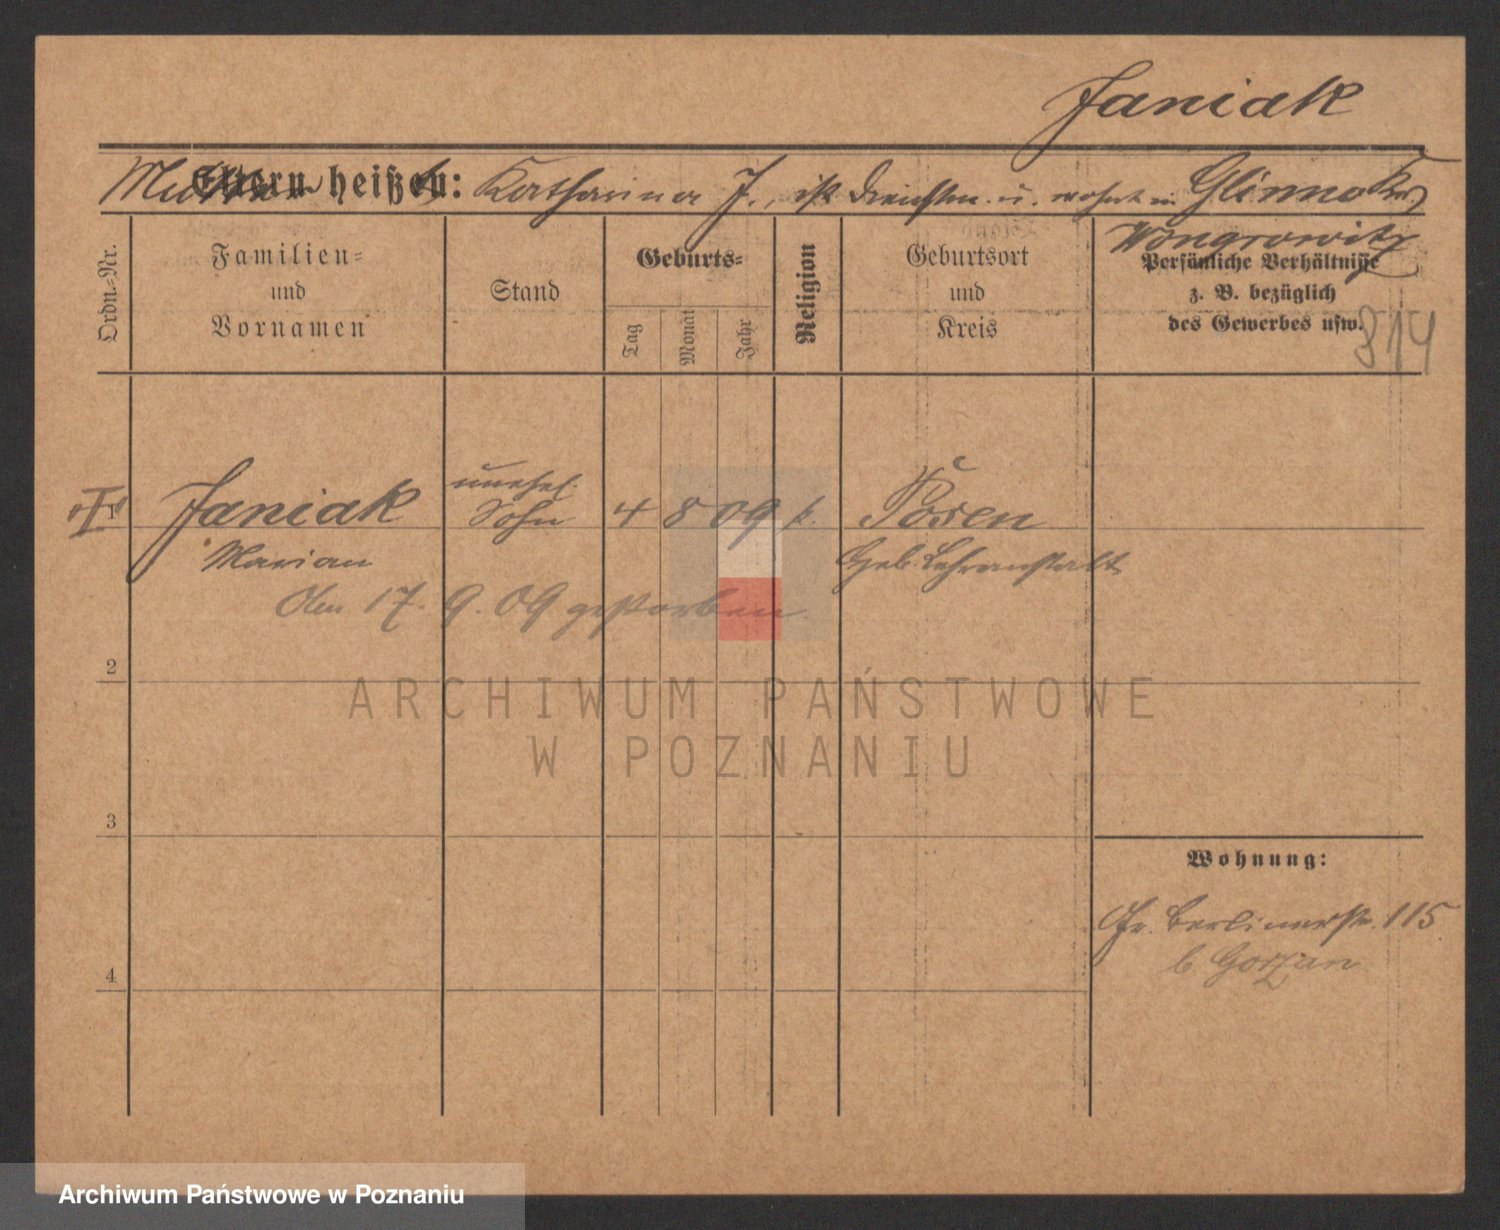 Janiak
Mutter heißt: Katharina J., ist Dienstm. u. wohnt in Glinno Kr.
Wongrowitz
Eltern heißen:
Ordn.-Nr.
Familien-
und
Vornamen
Stand
Geburts-
Tag
Monat
Jahr
Religion
Geburtsort
und
Kreis
Persönliche Verhältnisse
z. B. bezüglich
des Gewerbes usw.
814
I
Janiak
unehel.
Sohn
4 8 09 k.
Posen
Marian
Heb. Lehranstalt
Am 17. 9. 09 gestorben.
2
ARCHIWUM PAŃSTWOWE
W POZNANIU
3
Wohnung:
Gr. Berlinerstr. 115
b. Gorzan
4
Archiwum Państwowe w Poznaniu